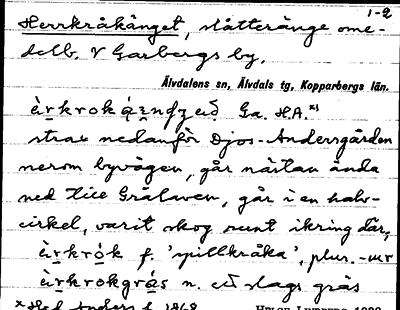 1-2
Herrkråkänget, slåtteränge ome-
delb. V Garbergs by.
Älvdalens sn, Älvdals tg, Kopparbergs län.
Ga. H.A.x)
strax nedanför Djos-Andersgården
nerom byvägen, går nästan ända
ned till Grålaven, går i en halv-
cirkel, varit skog runt ikring där,
ärkrok f. 'spillkråka', plur. -ur
ärkrokgrås n. ett slags gräs